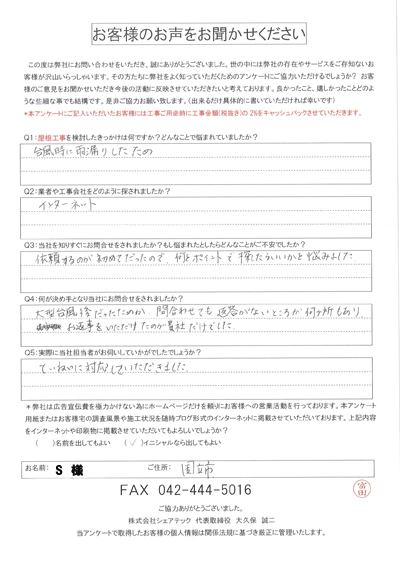 お客様のお声をお聞かせください
この度は弊社にお問い合わせをいただき、誠にありがとうございました。世の中には弊社の存在やサービスをご存知ないお
客様が沢山いらっしゃいます。その方たちに弊社をよく知っていただくためのアンケートにご協力いただけるでしょうか？ お客
様のご意見をお聞かせいただき今後の活動に反映させていただきたいと考えております。良かったこと、嬉しかったことどのよ
うな些細な事でも結構です。是非ご協力お願い致します。（出来るだけ具体的に書いていただければ幸いです）
＊本アンケートにご記入いただいたお客様には工事ご用命時に工事金額（税抜き）の 2%をキャッシュバックさせていただきます。
Q1：屋根工事を検討したきっかけは何ですか？どんなことで悩まれていましたか？
台風時に雨漏りしたため
Q2：業者や工事会社をどのように探されましたか？
インターネット
Q3：当社を知りすぐにお問合せをされましたか？もし悩まれたとしたらどんなことがご不安でしたか？
依頼するのが初めてだったので、何をポイントで探したらいいかを悩みました
Q4：何が決め手となり当社にお問合せをされましたか？
大型台風後だったためか、問合わせても返答がないところが何ヶ所もあり
お返事をいただけたのが貴社だけでした。
Q5：実際に当社担当者がお伺いしていかがでしたでしょうか？
ていねいに対応していただきました
＊弊社は広告宣伝費を極力かけない為にホームページだけを頼りにお客様への営業活動を行っております。本アンケート
用紙またはお客様宅の調査風景や施工状況を随時ブログ形式のインターネットに掲載させていただいております。上記内容
をインターネットや印刷物に掲載させていただいてもよろしいでしょうか？
（ ）名前を出してもよい （✓）イニシャルなら出してよい
お名前： S 様 ご住所： 国立市
FAX 042-444-5016
富田
ご協力ありがとうございました。
株式会社シェアテック 代表取締役 大久保 誠二
当アンケートで取得したお客様の個人情報は関係法規に基づき厳正に管理いたします。